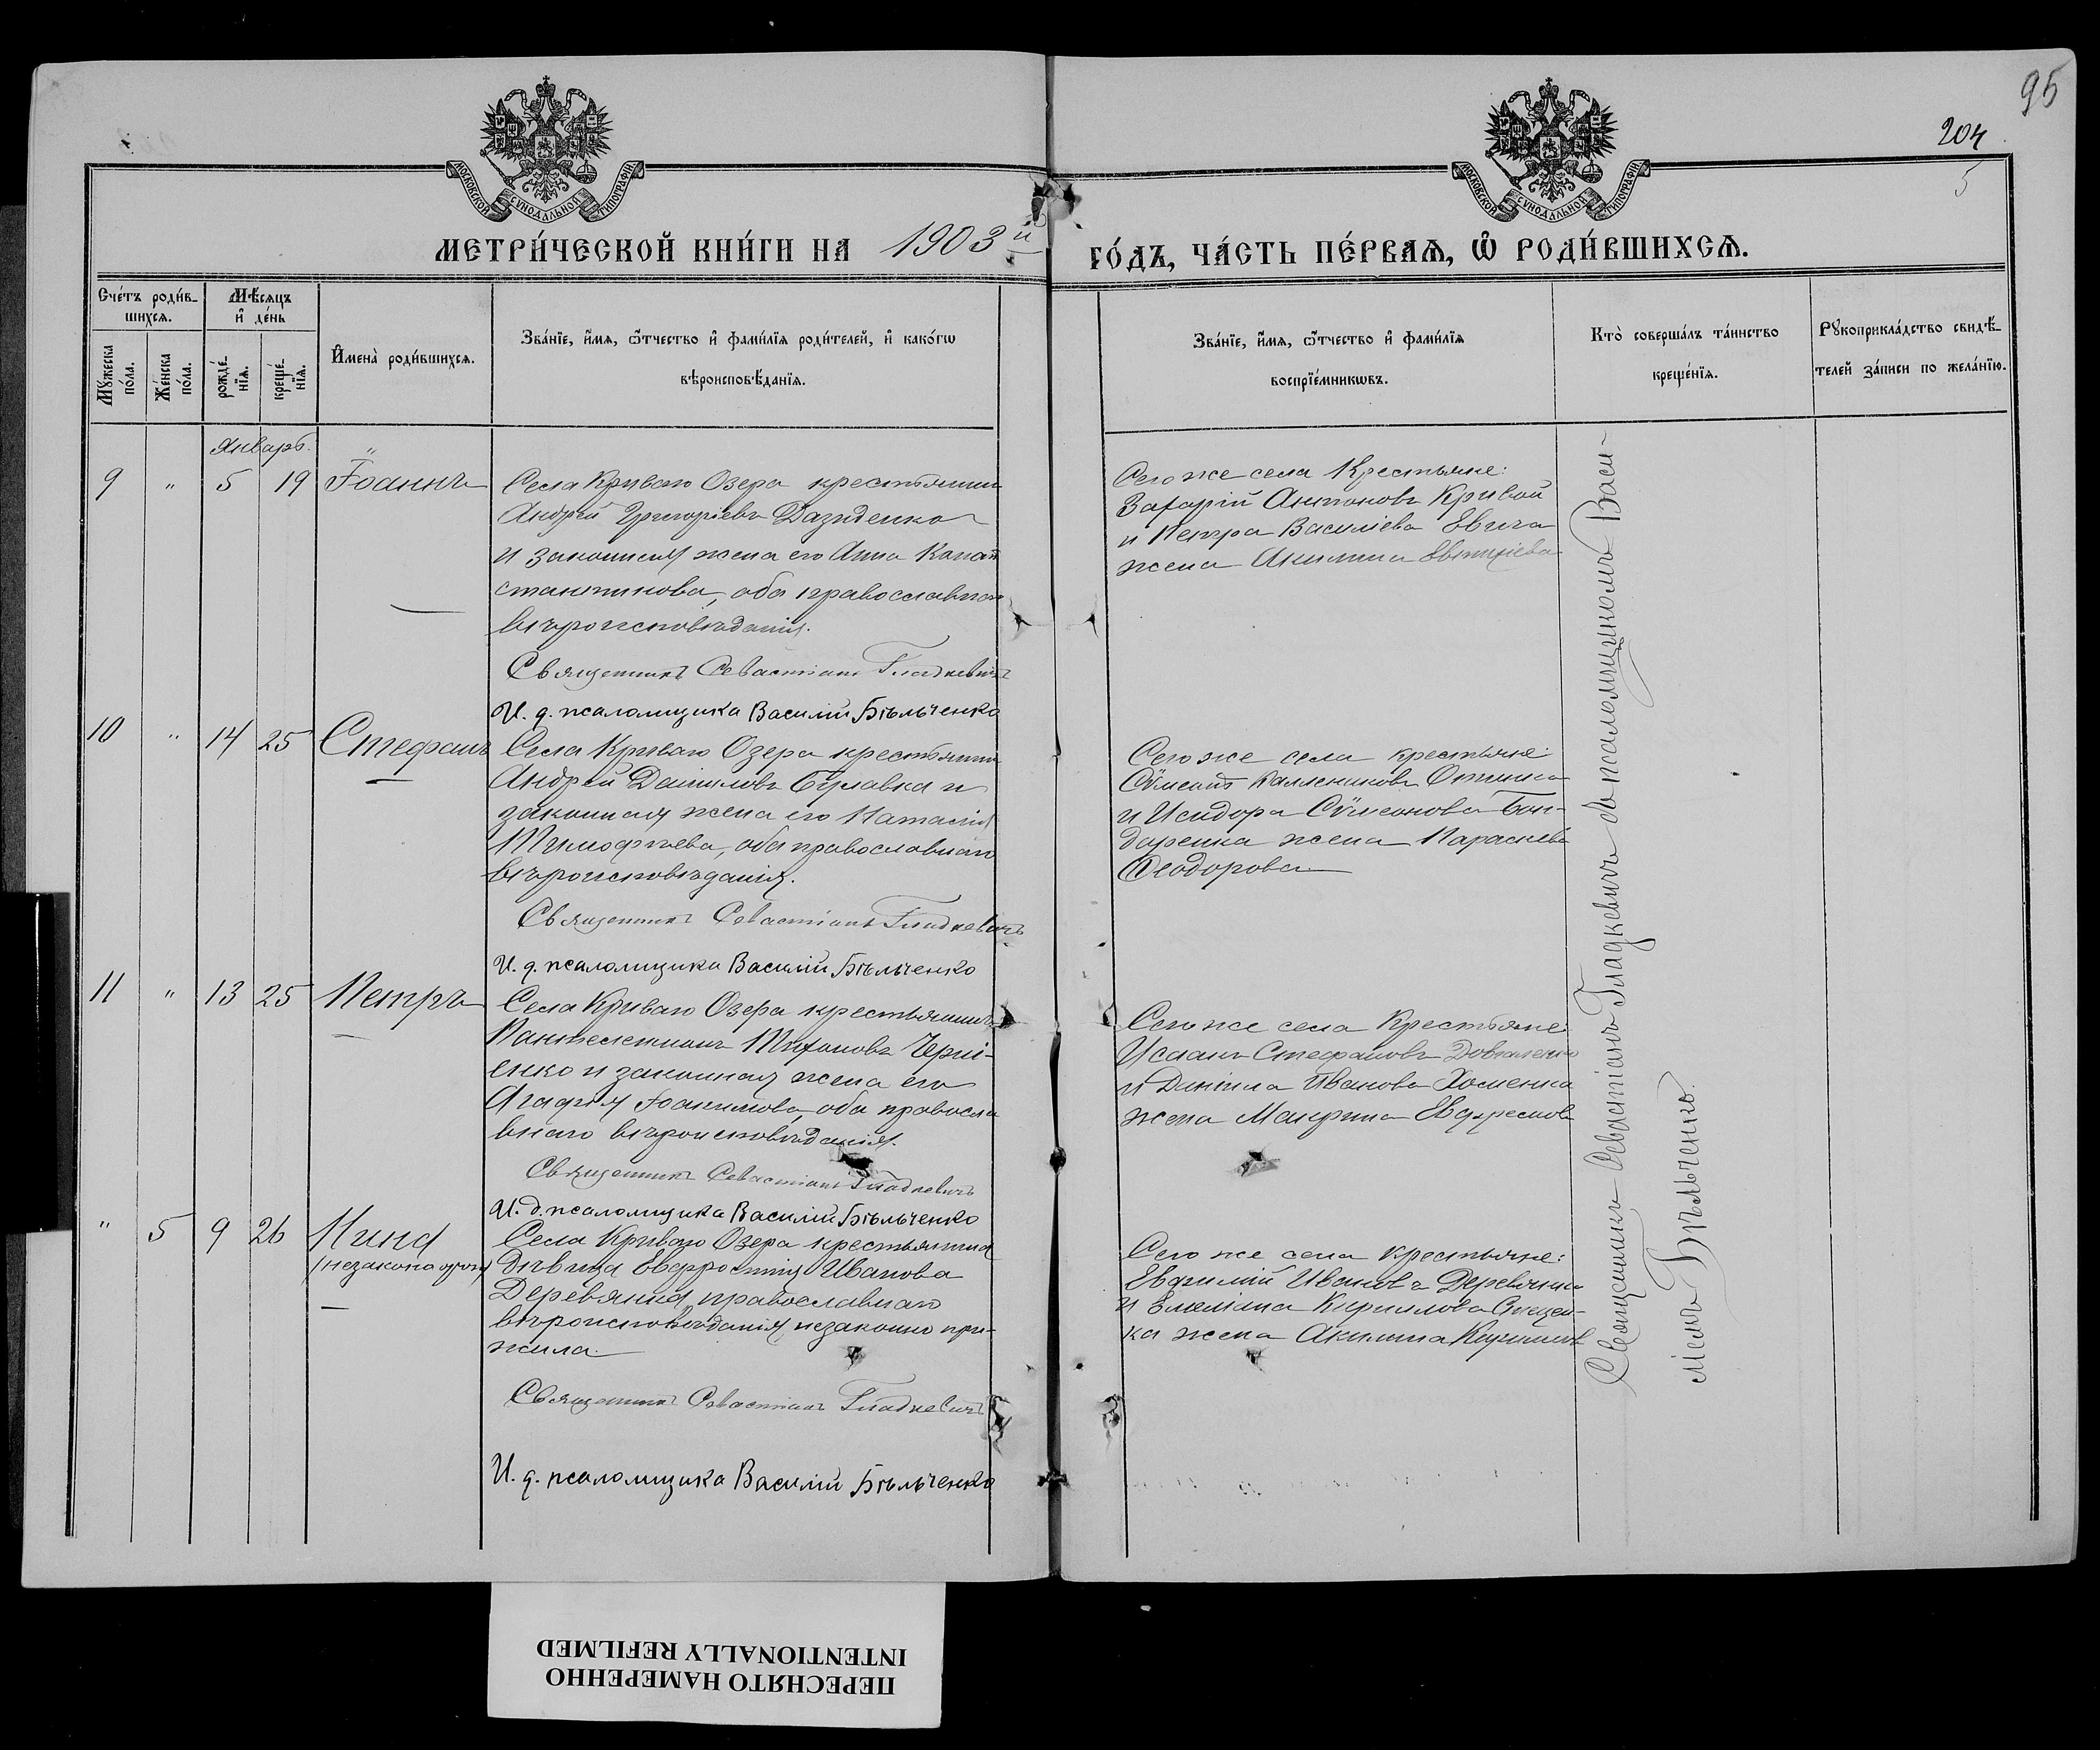 95
204
5
МОСКОВСКОЙ СѴНОДАЛЬНОЙ ТИПОГРАФІИ
МОСКОВСКОЙ СѴНОДАЛЬНОЙ ТИПОГРАФІИ
МЕТРИ́ЧЕСКОЙ КНИ́ГИ НА 1903й
ГО́ДЪ, ЧА́СТЬ ПЕ́РВАѦ, Ѽ РОДИ́ВШИХСѦ.
Сче́тъ роди́в-
шихсѧ.
Мꙋ́жеска по́ла.
Же́нска по́ла.
Мѣ́сѧцъ
и҆ де́нь
рожде́-нїѧ.
креще́-нїѧ.
И҆мена̀ роди́вшихсѧ.
Зва́нїе, и҆́мѧ, ѻ҆́тчество и҆ фами́лїѧ роди́телей, и҆ како́гѡ
вѣроисповѣ́данїѧ.
Зва́нїе, и҆́мѧ, ѻ҆́тчество и҆ фами́лїѧ
воспрїе́мникѡвъ.
Кто̀ соверша́лъ та́инство
креще́нїѧ.
Рꙋкоприкла́дство свидѣ́-
телей за́писи по жела́нїю.
Январь.
9 " 5 19 Іоаннъ
Села Криваго Озера крестьянин
Андрей Григоріевъ
и законная жена его Анна Кон
стантинова, оба православнаго
вѣроисповѣданія.
Священникъ Севастіанъ Гладкевичъ
И. д. псаломщика Василій Бѣльченко
Сего же села Крестьяне:
Захарій Антоновъ Кривой
и Петра Васильева
жена Акилина
10 " 14 25 Стефанъ
Села Криваго Озера крестьянин
Андрей Даниловъ Булавка и
законная жена его Наталія
Тимофѣева, оба православнаго
вѣроисповѣданія.
Священникъ Севастіанъ Гладкевичъ
И. д. псаломщика Василій Бѣльченко
Сего же села крестьяне:
Сѵмеонъ
и Исидора Сѵмеонова Бон-
даренка жена Параскева
Ѳеодорова
11 " 13 25 Петръ
Села Криваго Озера крестьянинъ
Пантелеимонъ Черні-
енко и законная жена его
Агафія Іоакимова, оба правосла
внаго вѣроисповѣданія.
Священникъ Севастіанъ Гладкевичъ
И. д. псаломщика Василій Бѣльченко
Сего же села Крестьяне:
Исаакъ Стефановъ
и Даніила Иванова Хоменка
жена
" 5 9 26 Нина
(незаконорож)
Села Криваго Озера крестьянка
дѣвица Евфросинія Иванова
Деревянка, православнаго
вѣроисповѣданія незаконно при-
жила.
Священникъ Севастіанъ Гладкевичъ
И. д. псаломщика Василій Бѣльченко
Сего же села крестьяне:
Евфимій Ивановъ Деревянко
и Емеліана Кириллова
ка жена Акилина
Священникъ Севастіанъ Гладкевичъ съ псаломщикомъ Васи-
ліемъ Бѣльченко.
ПЕРЕСНЯТО НАМЕРЕННО
INTENTIONALLY REFILMED